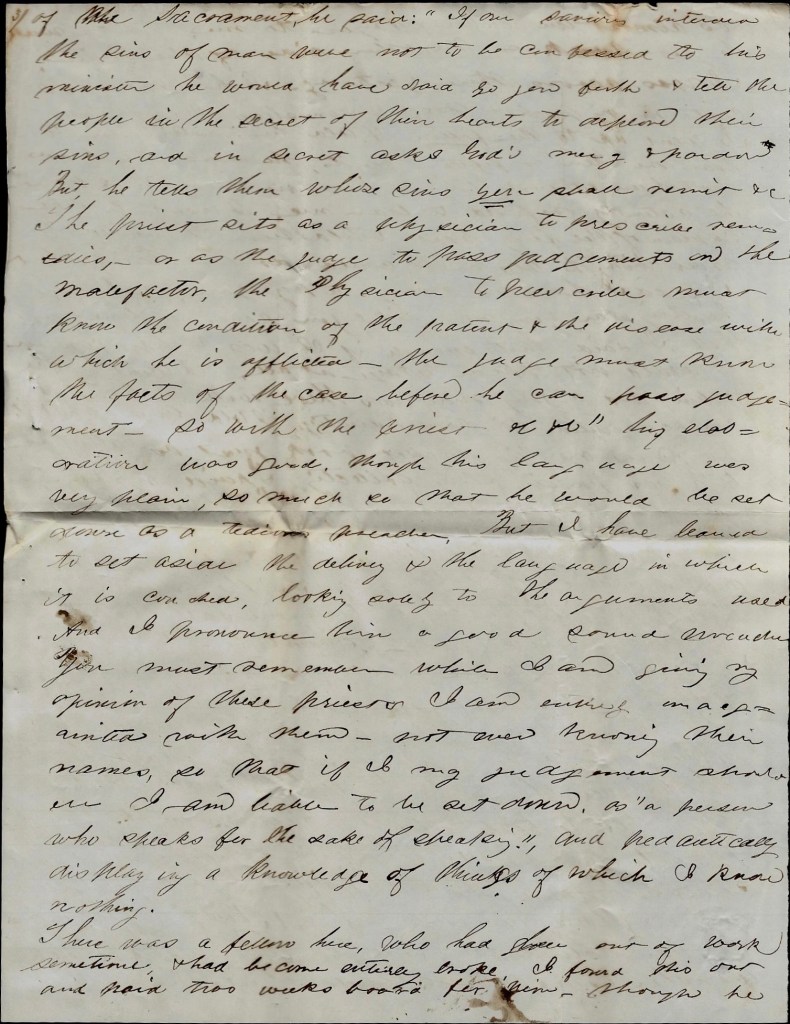 3/ of the Sacrament, he said: "If our saviour intended
the sins of man were not to be confessed to his
minister he would have said go you forth & tell the
people in the secret of their hearts to deplore their
sins, and in secret asks God's mercy & pardon
But he tells them whose sins you shall remit &c
The priest sits as a physician to prescribe reme-
dies, - or as the judge to pass judgements on the
malefactor, the Physician to prescribe must
know the condition of the patient & the disease with
which he is afflicted - the judge must know
the facts of the case before he can pass judge=
ment - so with the priest &c &c" his elab=
oration was good, though his language was
very plain, so much so that he would be set
down as a tedious preacher, But I have learned
to set aside the delivery & the language in which
it is couched, looking solely to the arguments used
And I pronounce him a good sound preacher
You must remember while I am giving my
opinion of these priests I am entirely unacq=
ainted with them - not even knowing their
names, so that if I my judgement should
err I am liable to be set down, as "a person
who speaks for the sake of speaking", and pedantically
displaying a knowledge of things of which I know
nothing.
There was a fellow here, who had been out of work
sometime, & had become entirely broke, I found this out
and paid two weeks board for him - though he